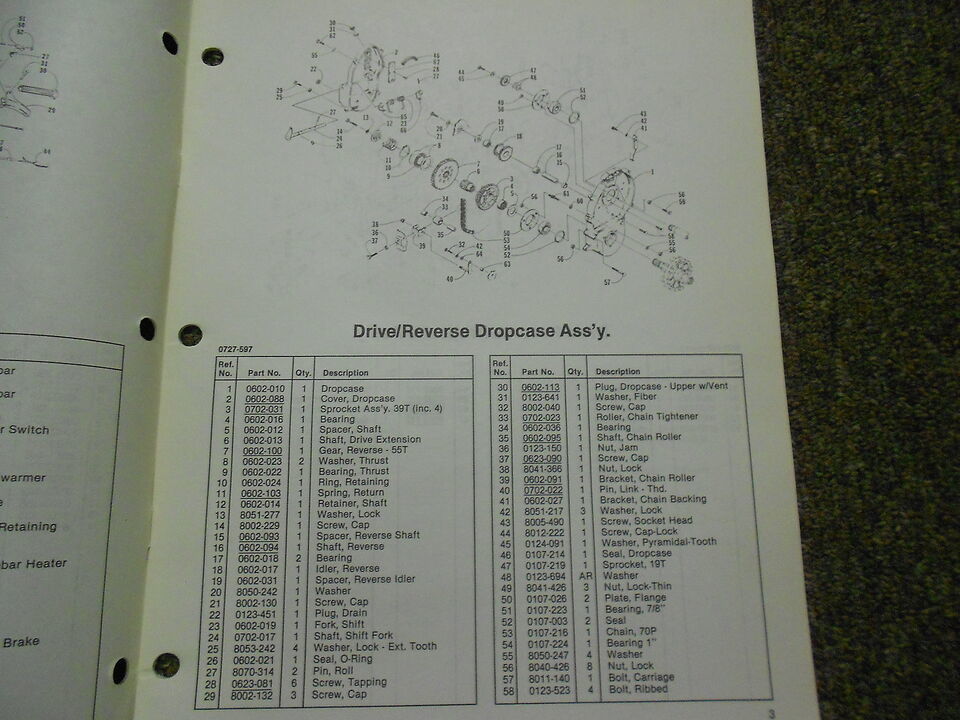 bar
bar
r Switch
warmer
e
Retaining
bar Heater
Brake
Drive/Reverse Dropcase Ass'y.
0727-597
Ref. No. Part No. Qty. Description
1 0602-010 1 Dropcase
2 0602-088 1 Cover, Dropcase
3 0702-031 1 Sprocket Ass'y. 39T (inc. 4)
4 0602-016 1 Bearing
5 0602-012 1 Spacer, Shaft
6 0602-013 1 Shaft, Drive Extension
7 0602-100 1 Gear, Reverse - 55T
8 0602-023 2 Washer, Thrust
9 0602-022 1 Bearing, Thrust
10 0602-024 1 Ring, Retaining
11 0602-103 1 Spring, Return
12 0602-014 1 Retainer, Shaft
13 8051-277 1 Washer, Lock
14 8002-229 1 Screw, Cap
15 0602-093 1 Spacer, Reverse Shaft
16 0602-094 1 Shaft, Reverse
17 0602-018 2 Bearing
18 0602-017 1 Idler, Reverse
19 0602-031 1 Spacer, Reverse Idler
20 8050-242 1 Washer
21 8002-130 1 Screw, Cap
22 0123-451 1 Plug, Drain
23 0602-019 1 Fork, Shift
24 0702-017 1 Shaft, Shift Fork
25 8053-242 4 Washer, Lock - Ext. Tooth
26 0602-021 1 Seal, O-Ring
27 8070-314 2 Pin, Roll
28 0623-081 6 Screw, Tapping
29 8002-132 3 Screw, Cap
Ref. No. Part No. Qty. Description
30 0602-113 1 Plug, Dropcase - Upper w/Vent
31 0123-641 1 Washer, Fiber
32 8002-040 1 Screw, Cap
33 0702-023 1 Roller, Chain Tightener
34 0602-036 1 Bearing
35 0602-095 1 Shaft, Chain Roller
36 0123-150 1 Nut, Jam
37 0623-090 1 Screw, Cap
38 8041-366 1 Nut, Lock
39 0602-091 1 Bracket, Chain Roller
40 0702-022 1 Pin, Link - Thd.
41 0602-027 1 Bracket, Chain Backing
42 8051-217 3 Washer, Lock
43 8005-490 1 Screw, Socket Head
44 8012-222 1 Screw, Cap-Lock
45 0124-091 1 Washer, Pyramidal-Tooth
46 0107-214 1 Seal, Dropcase
47 0107-219 1 Sprocket, 19T
48 0123-694 AR Washer
49 8041-426 3 Nut, Lock-Thin
50 0107-026 2 Plate, Flange
51 0107-223 1 Bearing, 7/8"
52 0107-003 2 Seal
53 0107-216 1 Chain, 70P
54 0107-224 1 Bearing 1"
55 8050-247 4 Washer
56 8040-426 8 Nut, Lock
57 8011-140 1 Bolt, Carriage
58 0123-523 4 Bolt, Ribbed
3